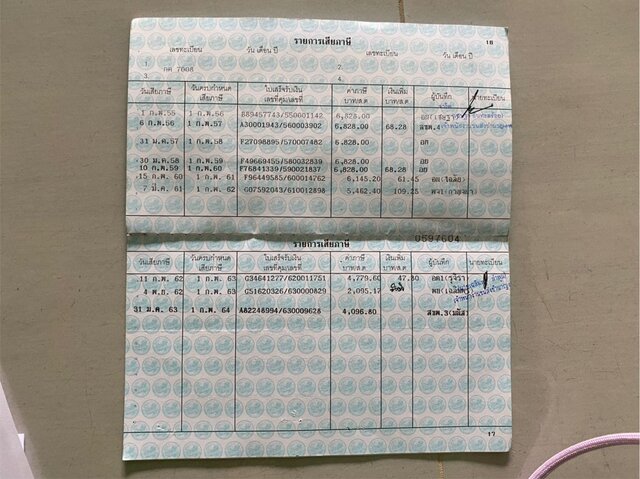 รายการเสียภาษี 16
เลขทะเบียน วัน เดือน ปี เลขทะเบียน วัน เดือน ปี
1 กค 7608 2.
3. 4.
วันเสียภาษี วันครบกำหนดเสียภาษี ใบเสร็จรับเงิน เล่มที่คุม/เลขที่ ค่าภาษี บาท/ส.ต. เงินเพิ่ม บาท/ส.ต. ผู้บันทึก นายทะเบียน
1 ก.พ.55 1 ก.พ.56 E89457743/550001142 6,828.00
6 ก.พ.56 1 ก.พ.57 A30001943/560003902 6,828.00 68.28
31 ม.ค.57 1 ก.พ.58 F27098895/570007482 6,828.00 อย
30 ม.ค.58 1 ก.พ.59 F49669455/580032839 6,828.00 อย
10 ก.พ.59 1 ก.พ.60 F76841339/590021837 6,828.00 68.28 อย
15 ก.พ. 60 1 ก.พ. 61 F96449585/600014762 6,145.20 61.45
7 มี.ค. 61 1 ก.พ. 62 G07592043/610012898 5,462.40 109.25
0597604
รายการเสียภาษี
วันเสียภาษี วันครบกำหนดเสียภาษี ใบเสร็จรับเงิน เล่มที่คุม/เลขที่ ค่าภาษี บาท/ส.ต. เงินเพิ่ม บาท/ส.ต. ผู้บันทึก นายทะเบียน
11 ก.พ. 62 1 ก.พ. 63 G34641277/620011751 4,779.60 47.80
4 พ.ย. 62 1 ก.พ. 63 G51620326/630000829 2,095.17
31 ม.ค. 63 1 ก.พ. 64 A82248994/630009628 4,096.80
17